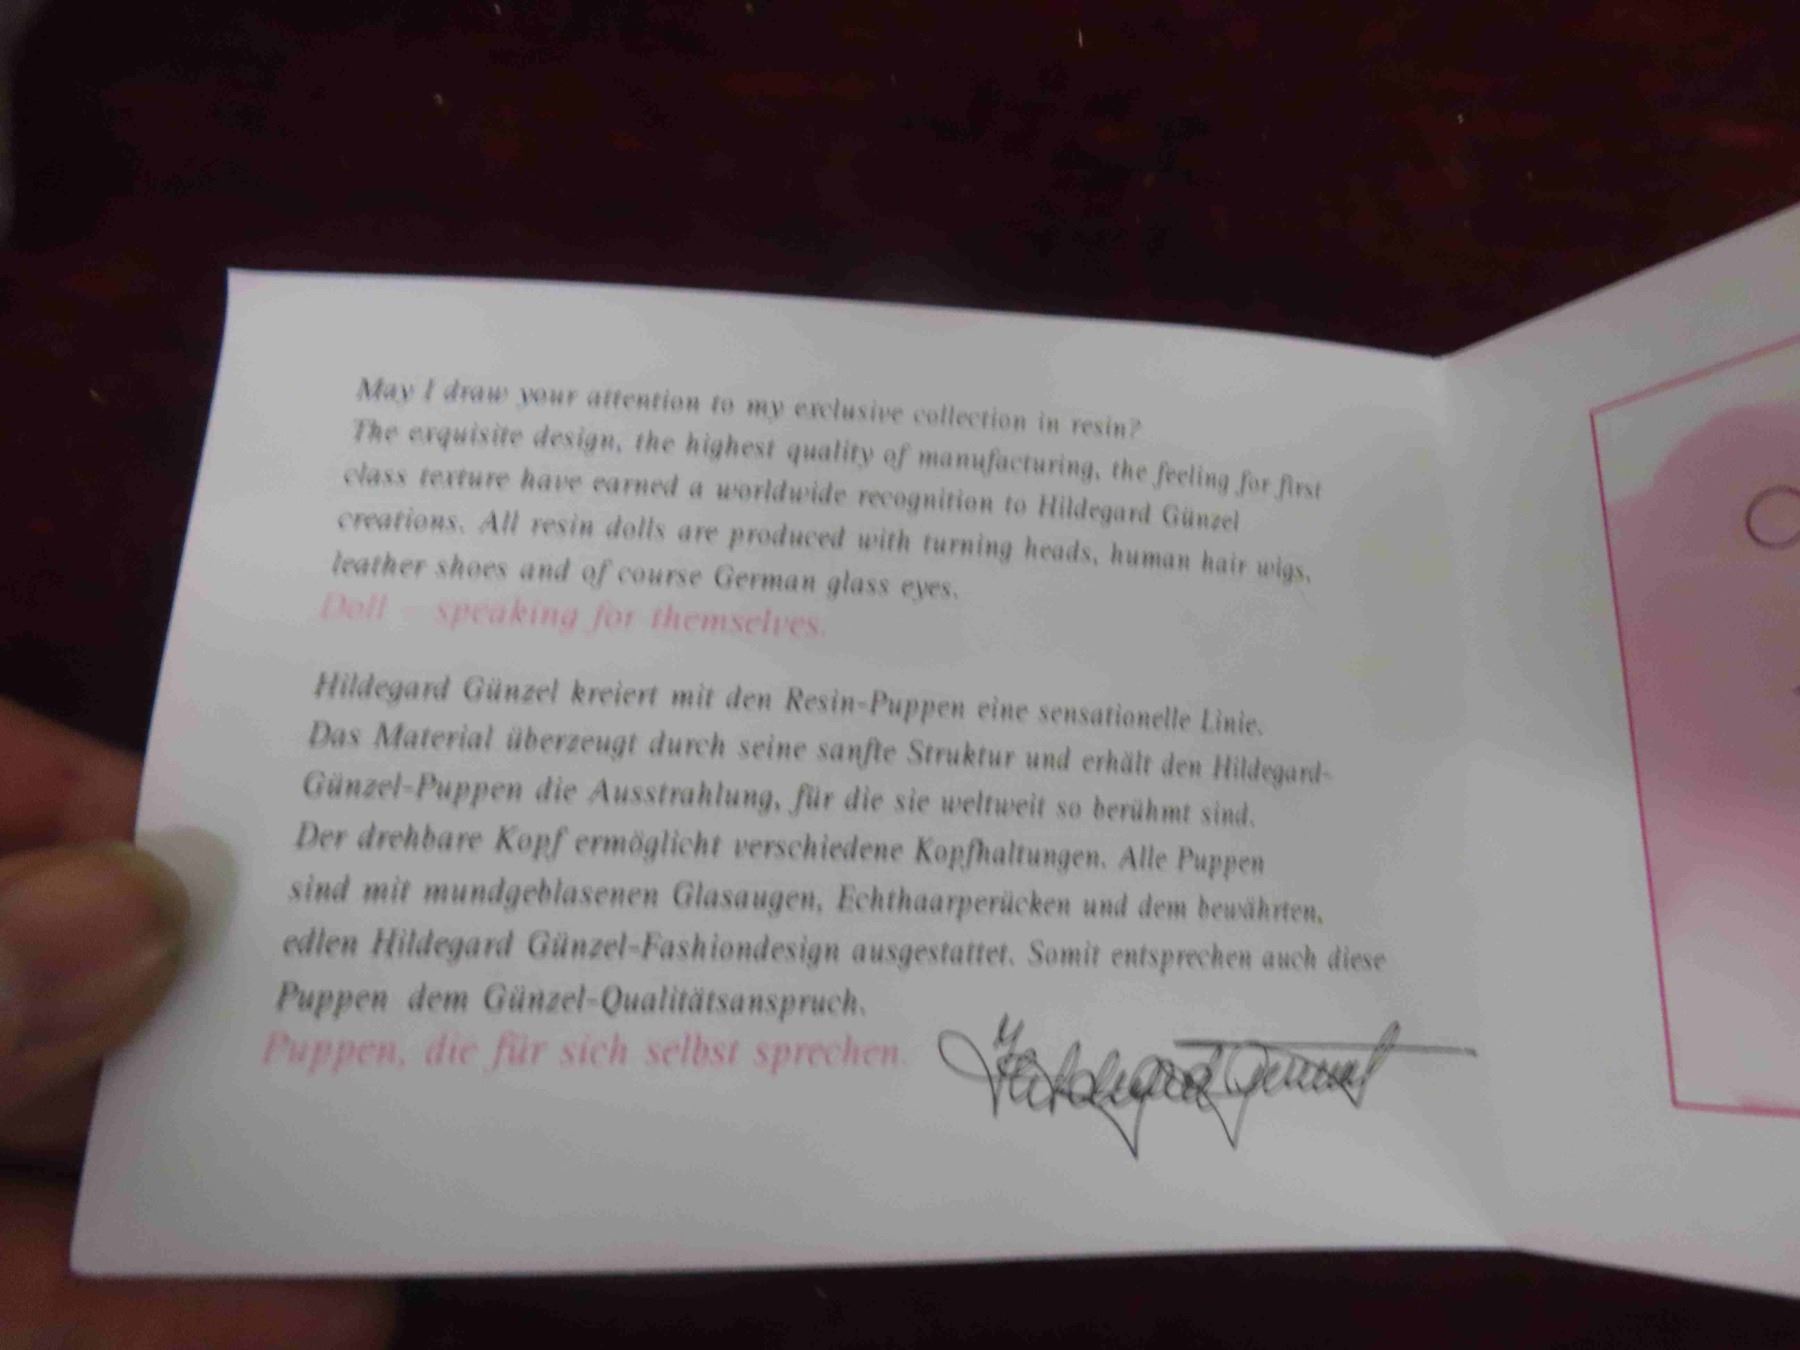 May I draw your attention to my exclusive collection in resin?
The exquisite design, the highest quality of manufacturing, the feeling for first
class texture have earned a worldwide recognition to Hildegard Günzel
creations. All resin dolls are produced with turning heads, human hair wigs,
leather shoes and of course German glass eyes.
Doll - speaking for themselves.
Hildegard Günzel kreiert mit den Resin-Puppen eine sensationelle Linie.
Das Material überzeugt durch seine sanfte Struktur und erhält den Hildegard-
Günzel-Puppen die Ausstrahlung, für die sie weltweit so berühmt sind.
Der drehbare Kopf ermöglicht verschiedene Kopfhaltungen. Alle Puppen
sind mit mundgeblasenen Glasaugen, Echthaarperücken und dem bewährten,
edlen Hildegard Günzel-Fashiondesign ausgestattet. Somit entsprechen auch diese
Puppen dem Günzel-Qualitätsanspruch.
Puppen, die für sich selbst sprechen.
Hildegard Günzel